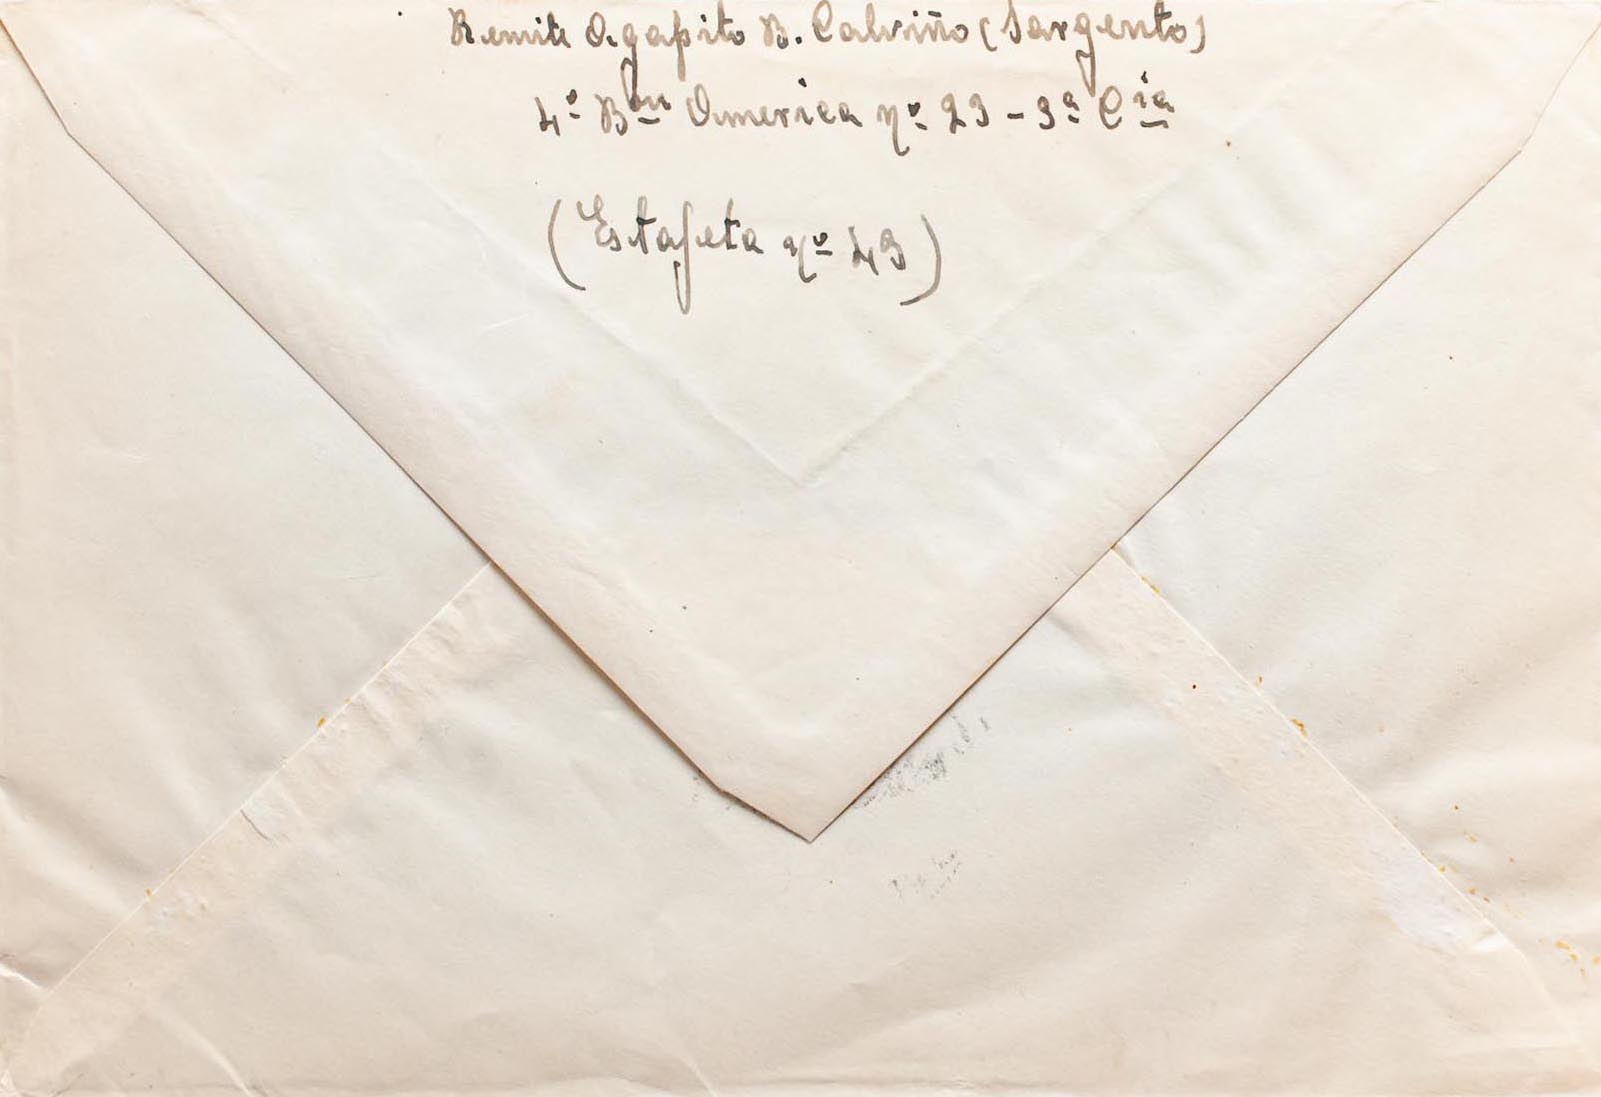 Remite Agapito B. Calviño (Sargento)
4º Bon America nº 23 - 3ª Cia
(Estafeta nº 43)